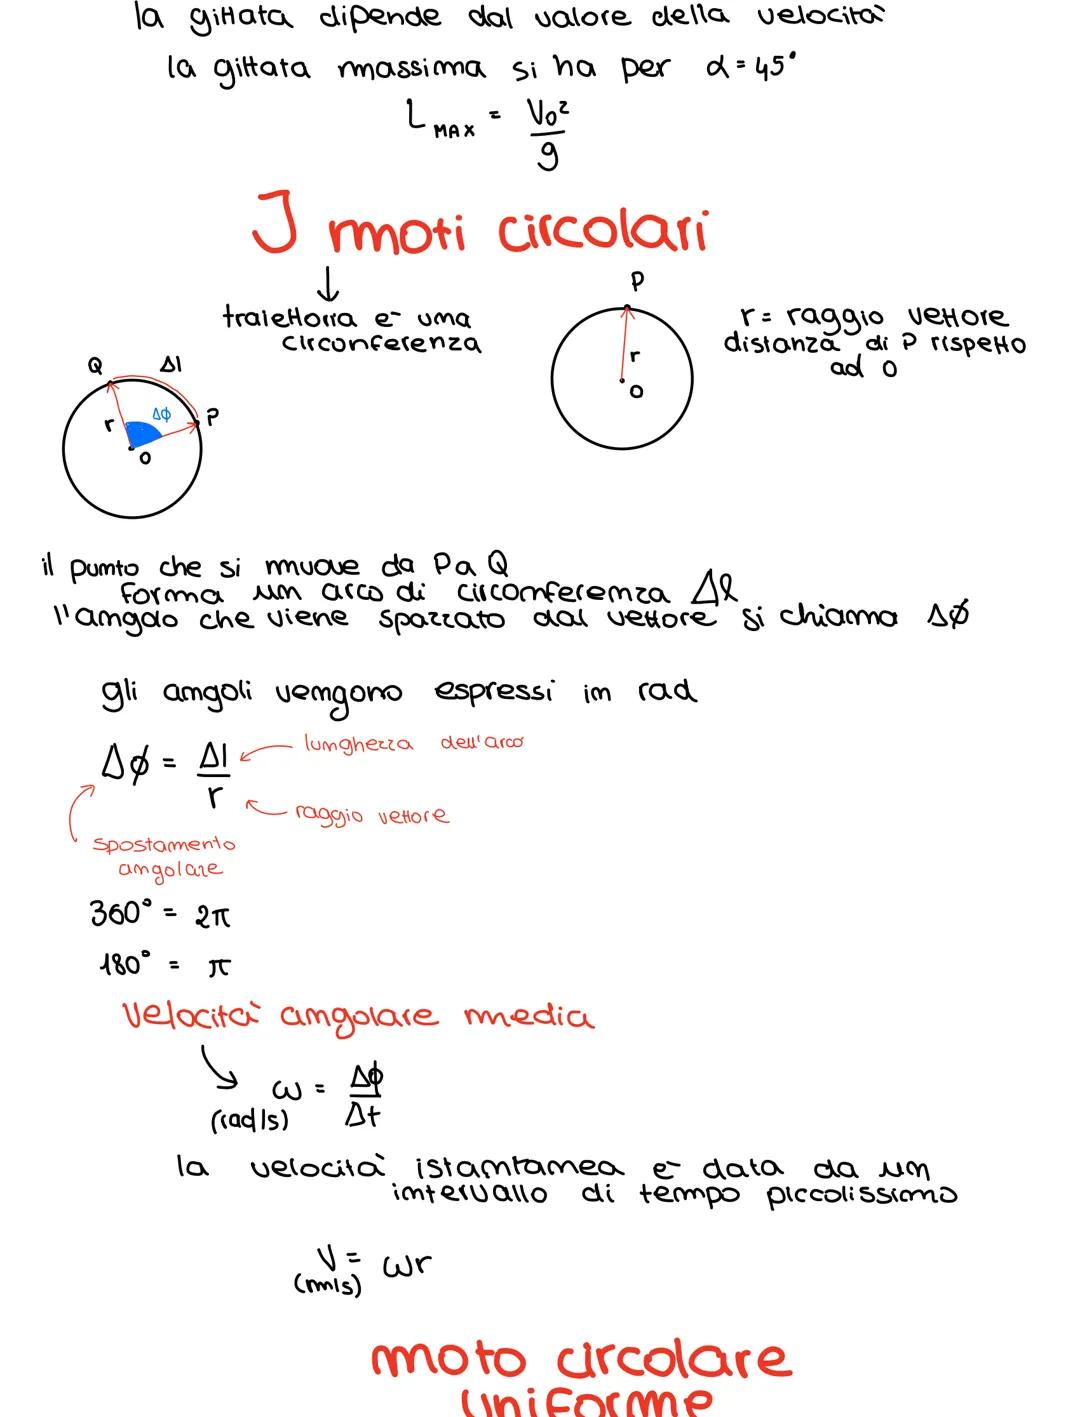 la gittata dipende dal valore della velocità
la gittata massima si ha per α = 45°
L MAX = V₀² / g
I moti circolari
↓
traiettoria è una
circonferenza
P
r
O
r = raggio vettore
distanza di P rispetto
ad O
Q Δl
r Δϕ P
O
il punto che si muove da P a Q
forma un arco di circonferenza Δl
l'angolo che viene spazzato dal vettore si chiama Δϕ
gli angoli vengono espressi in rad
Δϕ = Δl / r
lunghezza dell'arco
raggio vettore
spostamento
angolare
360° = 2π
180° = π
Velocità angolare media
ω = Δϕ / Δt
(rad/s)
la velocità istantanea è data da un
intervallo di tempo piccolissimo
V = ωr
(m/s)
moto circolare
uniforme